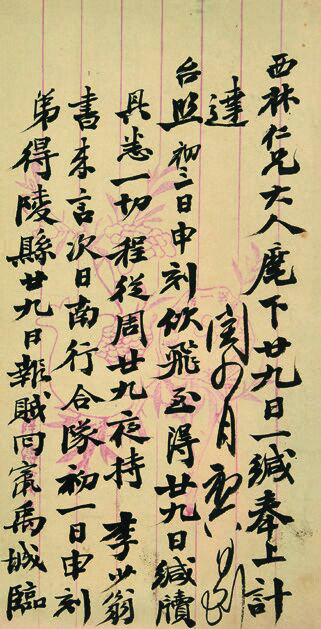 西林仁兄大人麾下廿九日一緘奉上計
達
閏四月初
台照初二日申刻佽飛至得廿九日緘牘
具悉一切程從周廿九夜持 李少翁
書来言次日南行合隊初一日申刻
弟得陵縣廿九日報賊回竄禹城臨